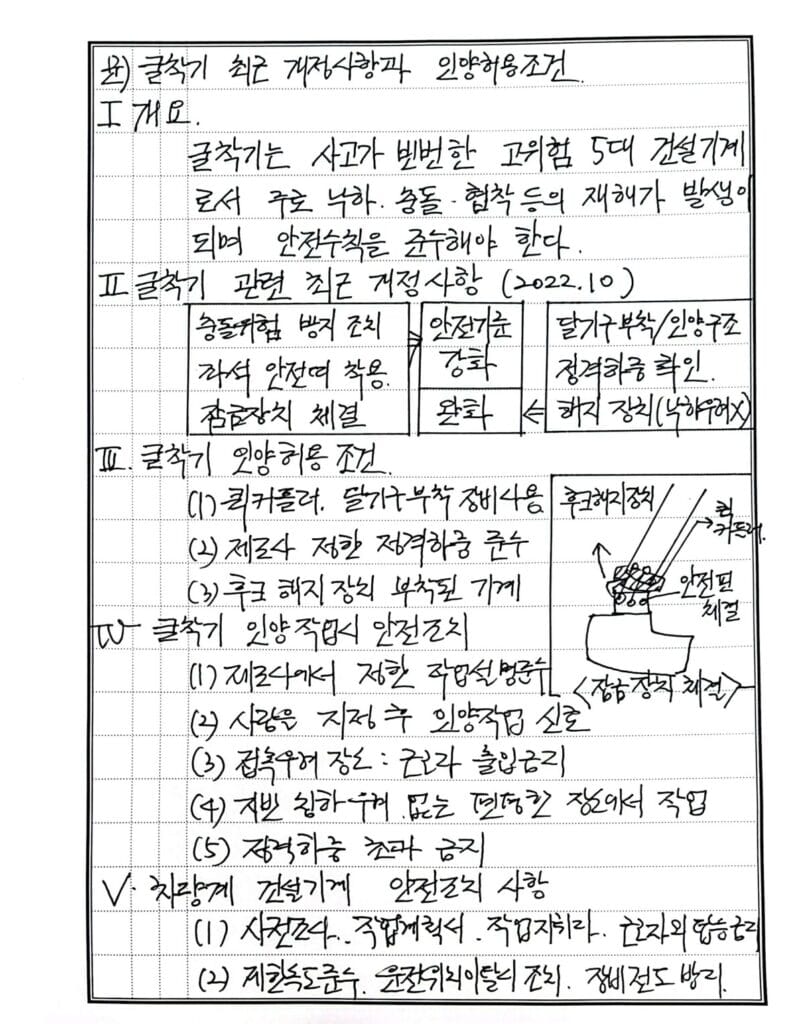 문) 굴착기 최근 개정사항과 인양허용조건.
I 개요.
굴착기는 사고가 빈번한 고위험 5대 건설기계
로서 주로 낙하·충돌·협착 등의 재해가 발생이
되며 안전수칙을 준수해야 한다.
II 굴착기 관련 최근 개정사항 (2022.10)
충돌위험 방지 조치
좌석 안전띠 착용.
잠금장치 체결
안전기준
강화
완화
달기구부착/인양구조
정격하중 확인.
해지 장치(낙하우려X)
III. 굴착기 인양허용 조건.
(1) 퀵커플러. 달기구부착 장비사용
(2) 제조사 정한 정격하중 준수
(3) 후크 해지장치 부착된 기계
후크해지장치
퀵
커플러.
안전핀
체결
<잠금장치 체결>
IV 굴착기 인양작업시 안전조치
(1) 제조사에서 정한 작업설명준수
(2) 사람은 지정 후 인양작업 신호
(3) 접촉우려 장소 : 근로자 출입금지
(4) 지반 침하우려 없는 평평한 장소에서 작업
(5) 정격하중 초과 금지
V. 차량계 건설기계 안전조치 사항
(1) 사전조사. 작업계획서. 작업지휘자. 근로자외 탑승금지
(2) 제한속도준수. 운전위치이탈시 조치. 장비전도 방지.